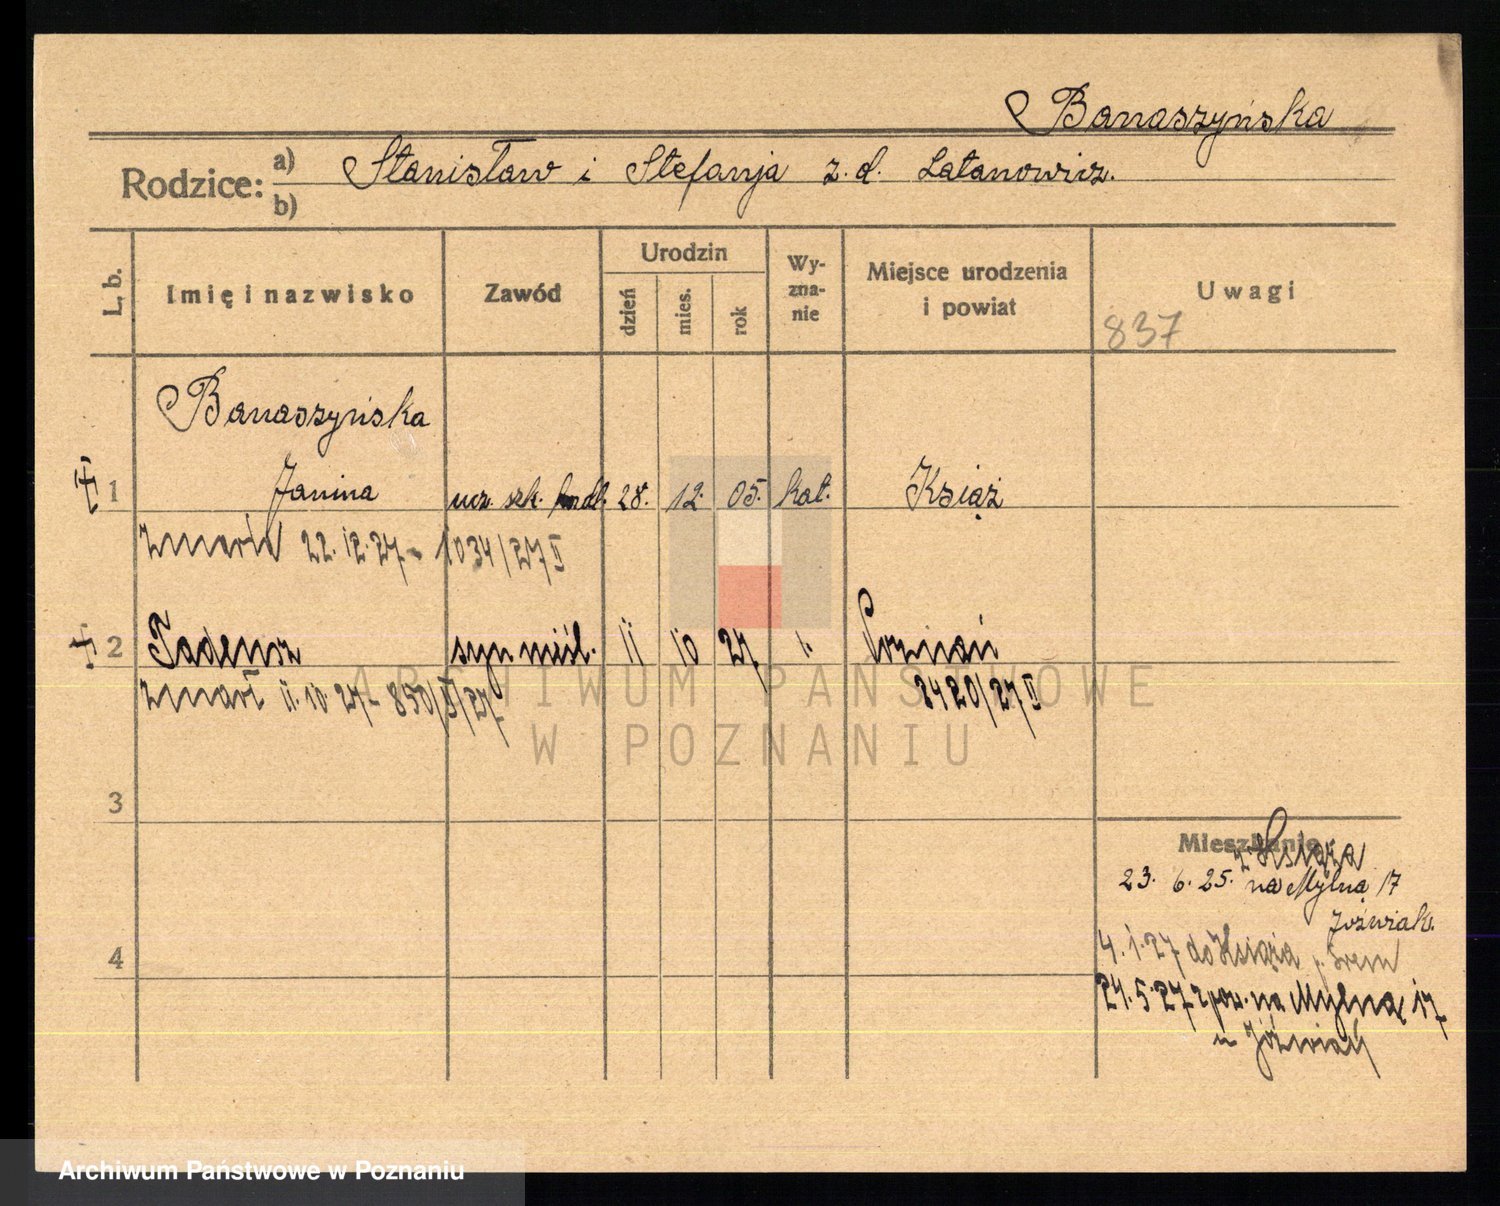 Banaszyńska
Rodzice: a) Stanisław i Stefanja z. d. Latanowicz.
b)
L. b.
Imię i nazwisko
Zawód
Urodzin
dzień
mies.
rok
Wy-
zna-
nie
Miejsce urodzenia
i powiat
Uwagi
837
Banaszyńska
1 Janina ucz. szk. handl. 28. 12. 05. kat. Książ
zmarła 22.12.27 - 1034/27 II
2 Tadeusz syn nieśl. 11 10 27 " Poznań
zmarł 11.10.27 - 850/II/27
2420/27 II
3
4
Mieszkanie
z Książa
23. 6. 25. na Mylną 17
Jóźwiak.
4.1.27 do Książa p. Śrem
24.5.27 z pow. na Mylną 17
u Jóźwiak
ARCHIWUM PAŃSTWOWE
W POZNANIU
Archiwum Państwowe w Poznaniu